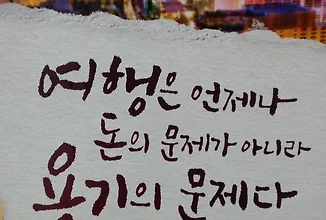 여행은 언제나
돈의 문제가 아니라
용기의 문제다